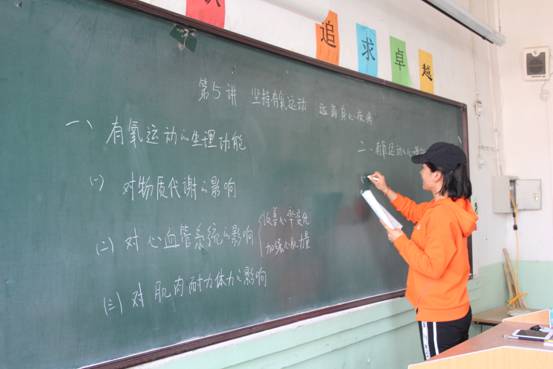 追求卓越
第5讲 坚持有氧运动 远离身心疾病
一、有氧运动的生理功能
(一) 对物质代谢的影响
(二) 对心血管系统的影响
改善心
加强心肌力量
(三) 对肌肉耐力体力的影响
二、有氧运动心理